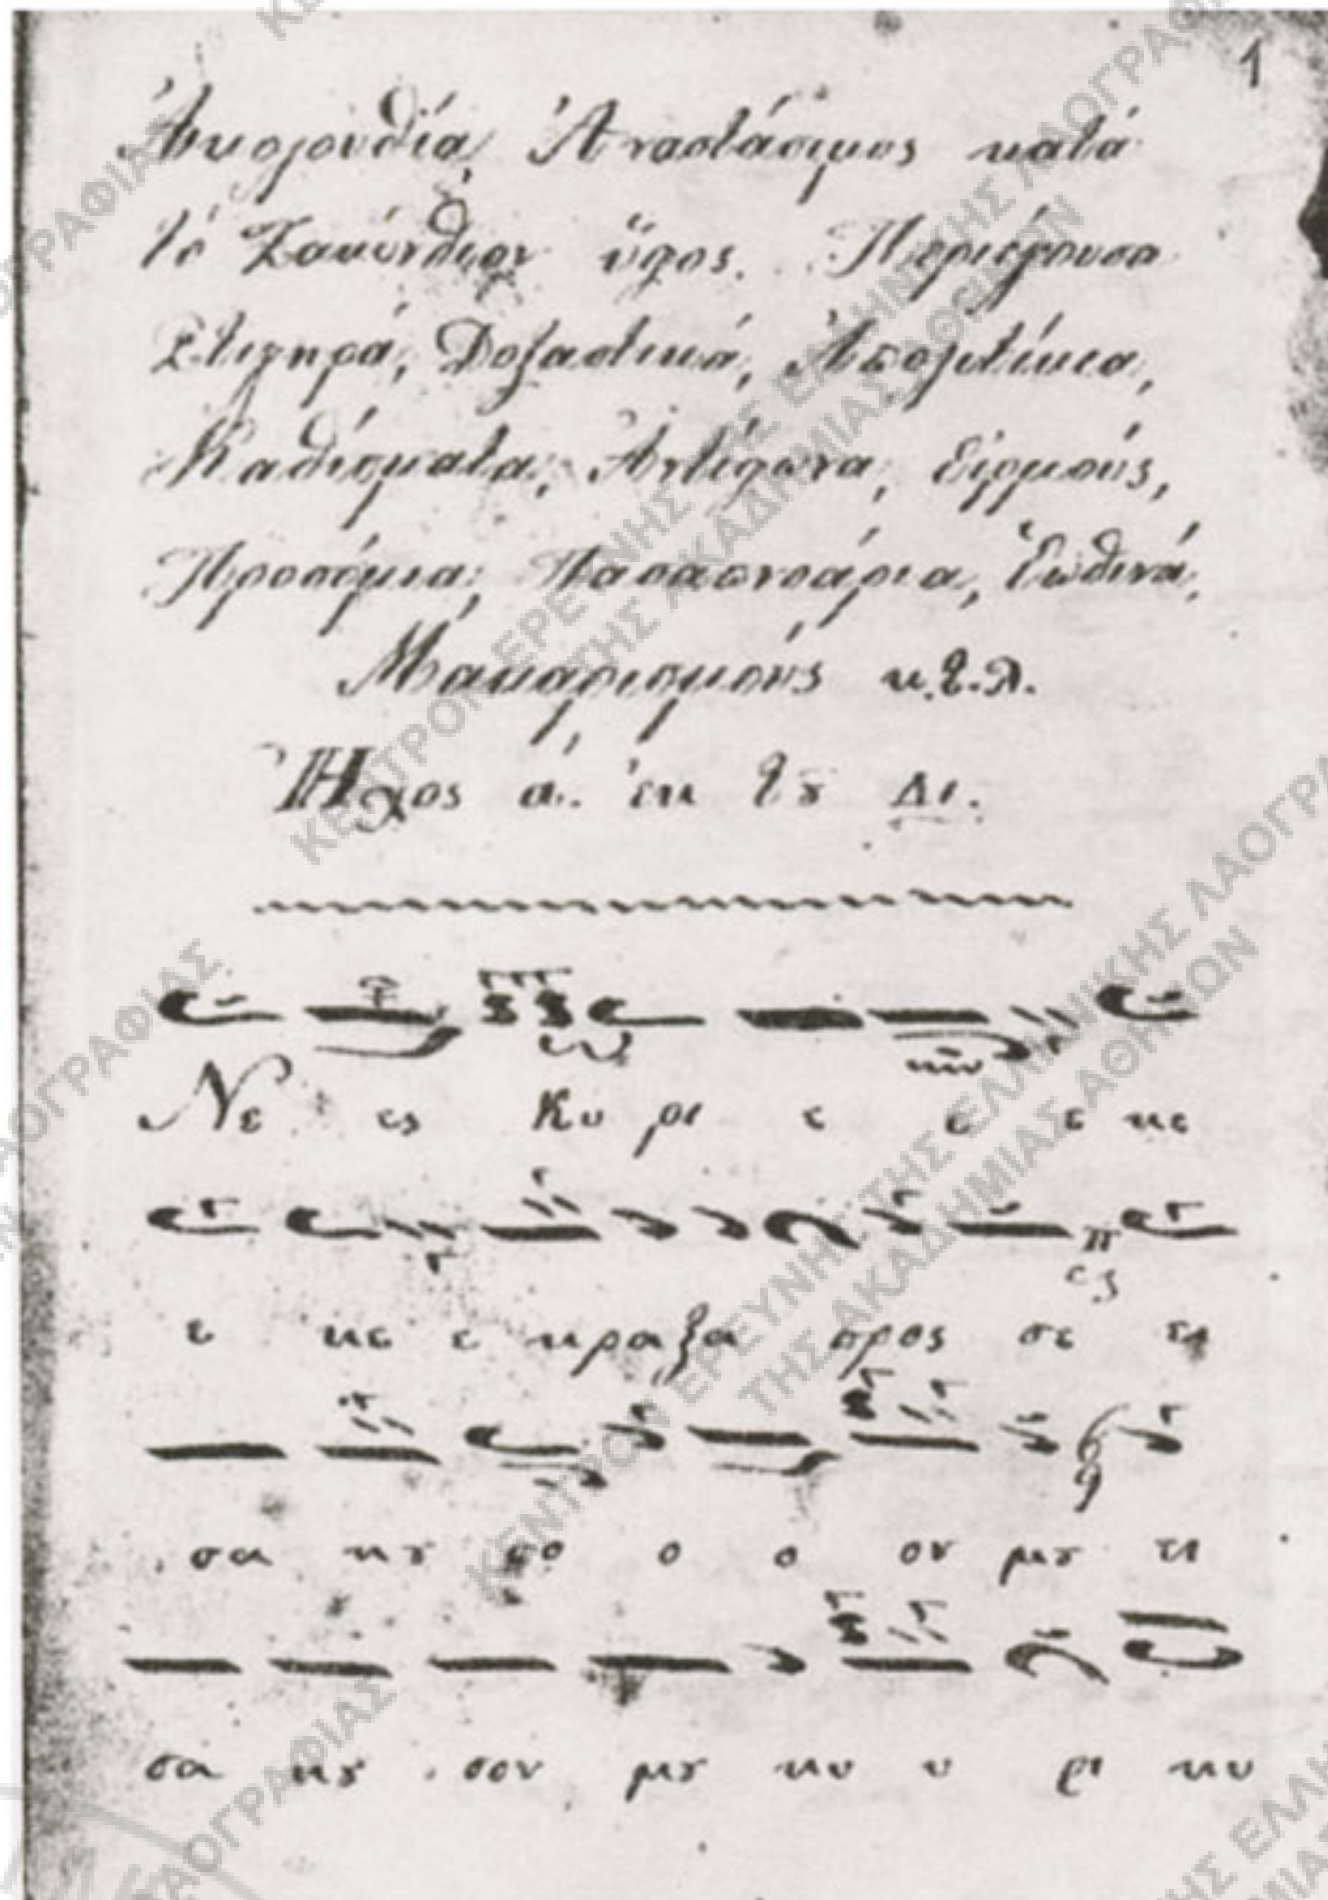 1
Ἀκολουθία Ἀναστάσιμος κατὰ
τὸ Ζακύνθιον ὕφος. Περιέχουσα
Στιχηρά, Δοξαστικά, Ἀπολυτίκια,
Καθίσματα, Ἀντίφωνα, Εἱρμούς,
Προσόμια, Πασαπνοάρια, Ἑωθινά,
Μακαρισμούς κ.τ.λ.
Ἦχος α. ἐκ τȣ Δι.
Νε ες Κυ ρι ε ε ε κε
ε κε ε κραξα προς σε ει
σα κȣ σο ο ο ον μȣ ει
σα κȣ σον μȣ κυ υ ρι κυ
ΚΕΝΤΡΟΝ ΕΡΕΥΝΗΣ ΤΗΣ ΕΛΛΗΝΙΚΗΣ ΛΑΟΓΡΑΦΙΑΣ
ΤΗΣ ΑΚΑΔΗΜΙΑΣ ΑΘΗΝΩΝ